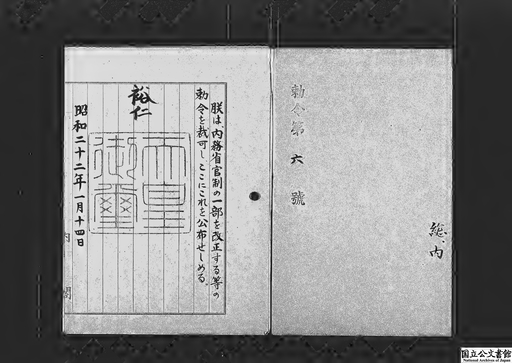 勅令第六號
総、内
朕は、內務省官制の一部を改正する等の
勅令を裁可し、ここにこれを公布せしめる。
裕仁
天皇御璽
昭和二十二年一月十四日
内閣
国立公文書館
National Archives of Japan